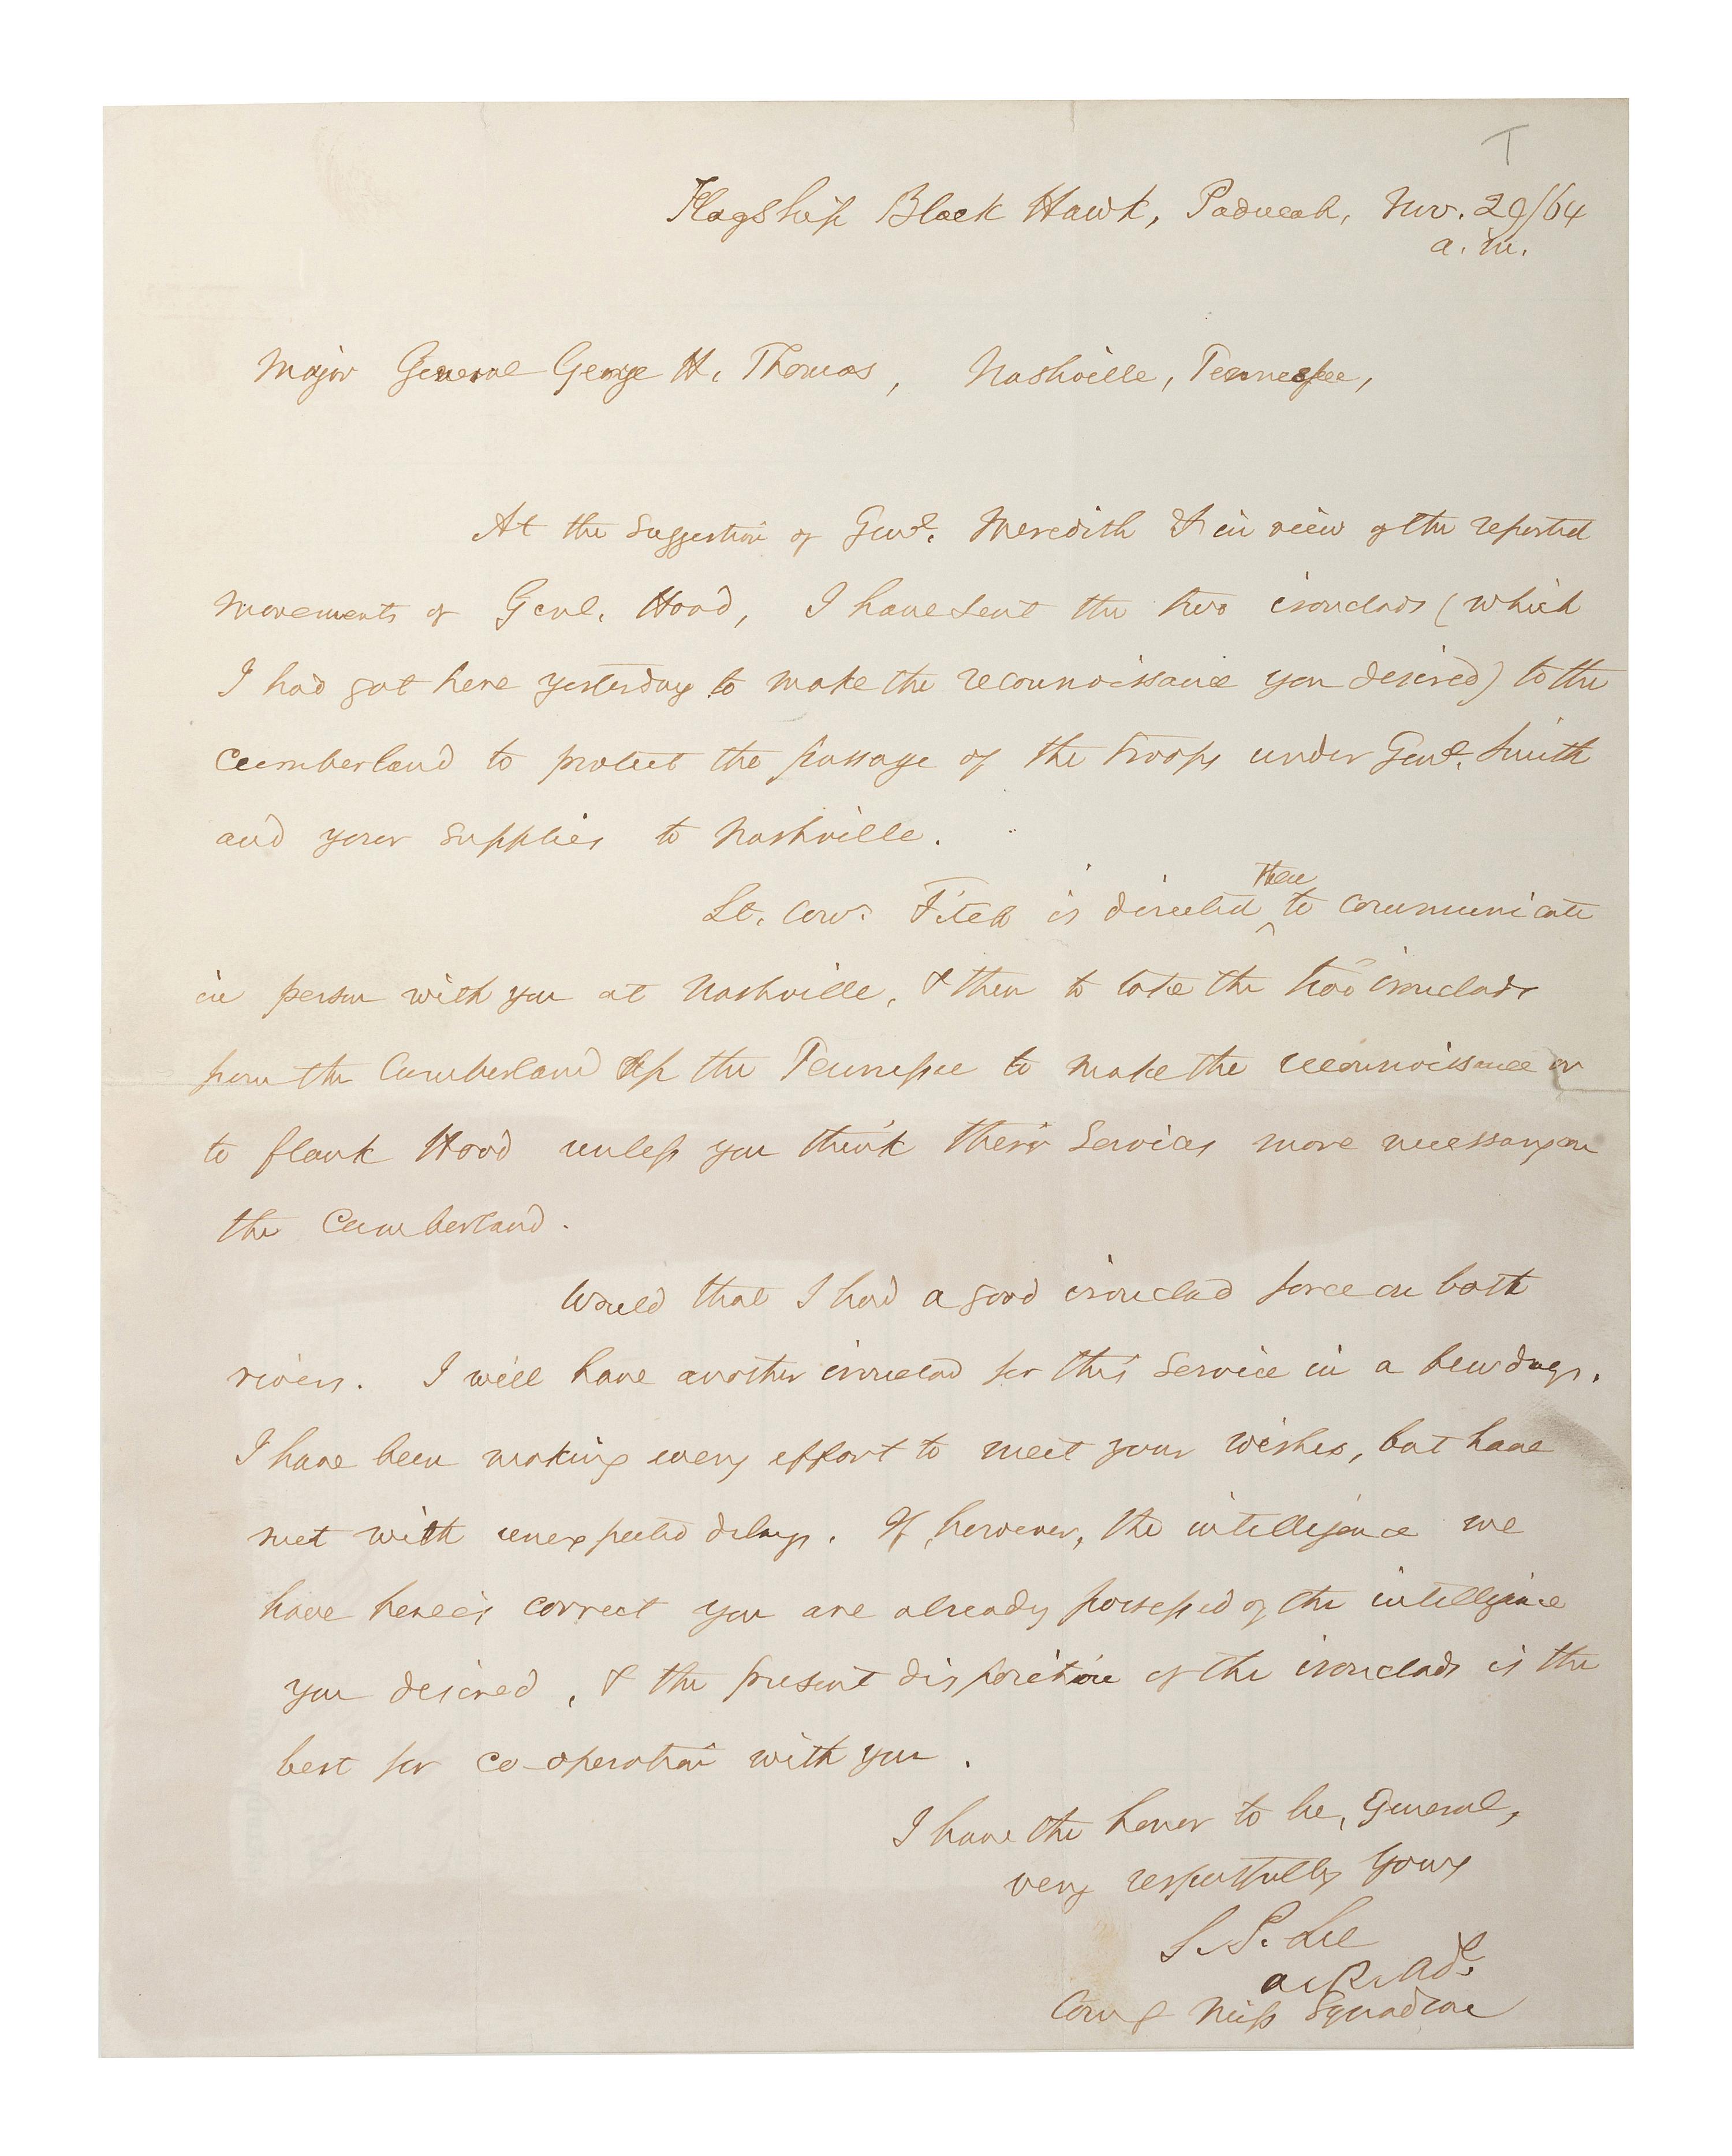 T
Flagship Black Hawk, Paducah, Nov. 29/64
a.m.
Major General George H. Thomas, Nashville, Tennessee,
At the suggestion of Genl. Meredith & in view of the reported
movements of Genl. Hood, I have sent the two ironclads (which
I had got here yesterday to make the reconnoissance you desired) to the
Cumberland to protect the passage of the troops under Genl. Smith
and your supplies to Nashville.
then
Lt. Com. Fitch is directed ^ to communicate
in person with you at Nashville, & then to take the two ironclads
from the Cumberland up the Tennessee to make the reconnoissance or
to flank Hood unless you think their services more necessary on
the Cumberland.
Would that I had a good ironclad force on both
rivers. I will have another ironclad for this service in a few days.
I have been making every effort to meet your wishes, but have
met with unexpected delays. If, however, the intelligence we
have here is correct you are already possessed of the intelligence
you desired, & the present disposition of the ironclads is the
best for co-operation with you.
I have the honor to be, General,
very respectfully Yours
S. P. Lee
a. R. Adl.
Comg Miss Squadron